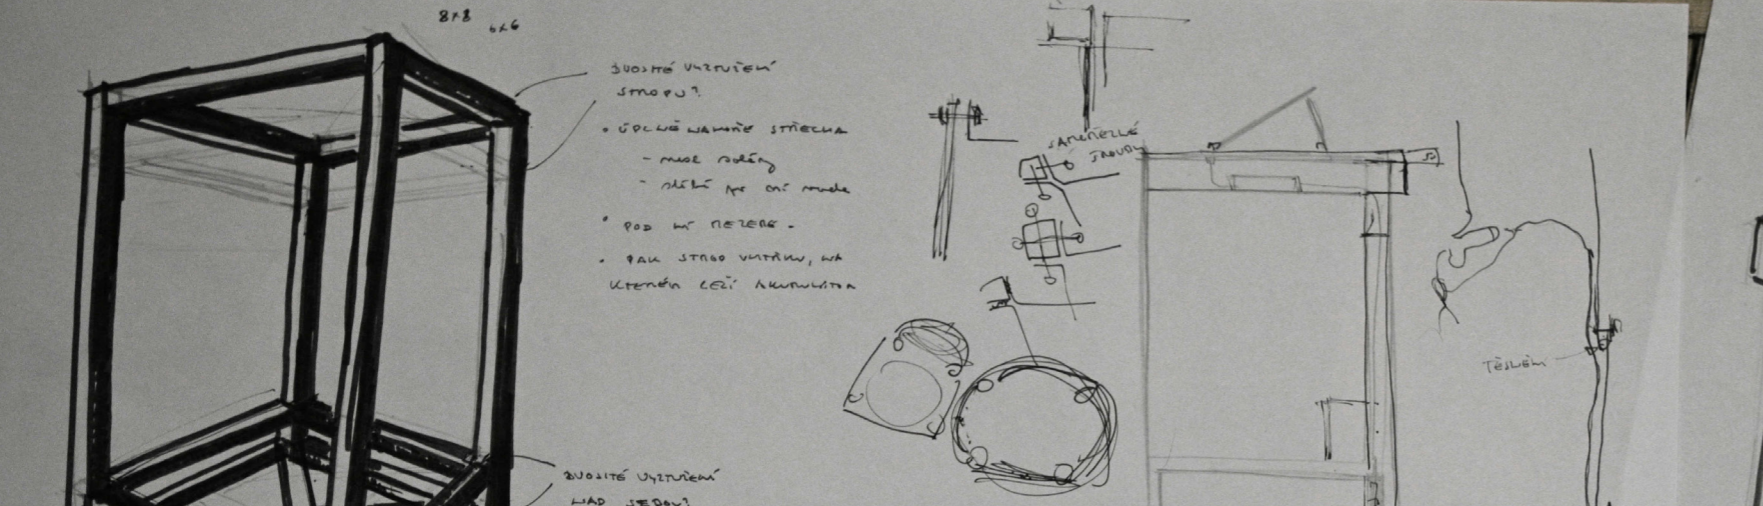 8x8
6x6
DVOJITÉ VYZTUŽENÍ
STROPU?
• ÚPLNĚ NAHOŘE STŘECHA
- nese soláry
-
• POD NÍ MEZERA -
• PAK STROP VNITŘKU, NA
KTERÉM LEŽÍ AKUMULÁTOR
SAMOŘEZNÉ
ŠROUBY
TĚSNĚNÍ
DVOJITÉ VYZTUŽENÍ
NAD SEDOU?